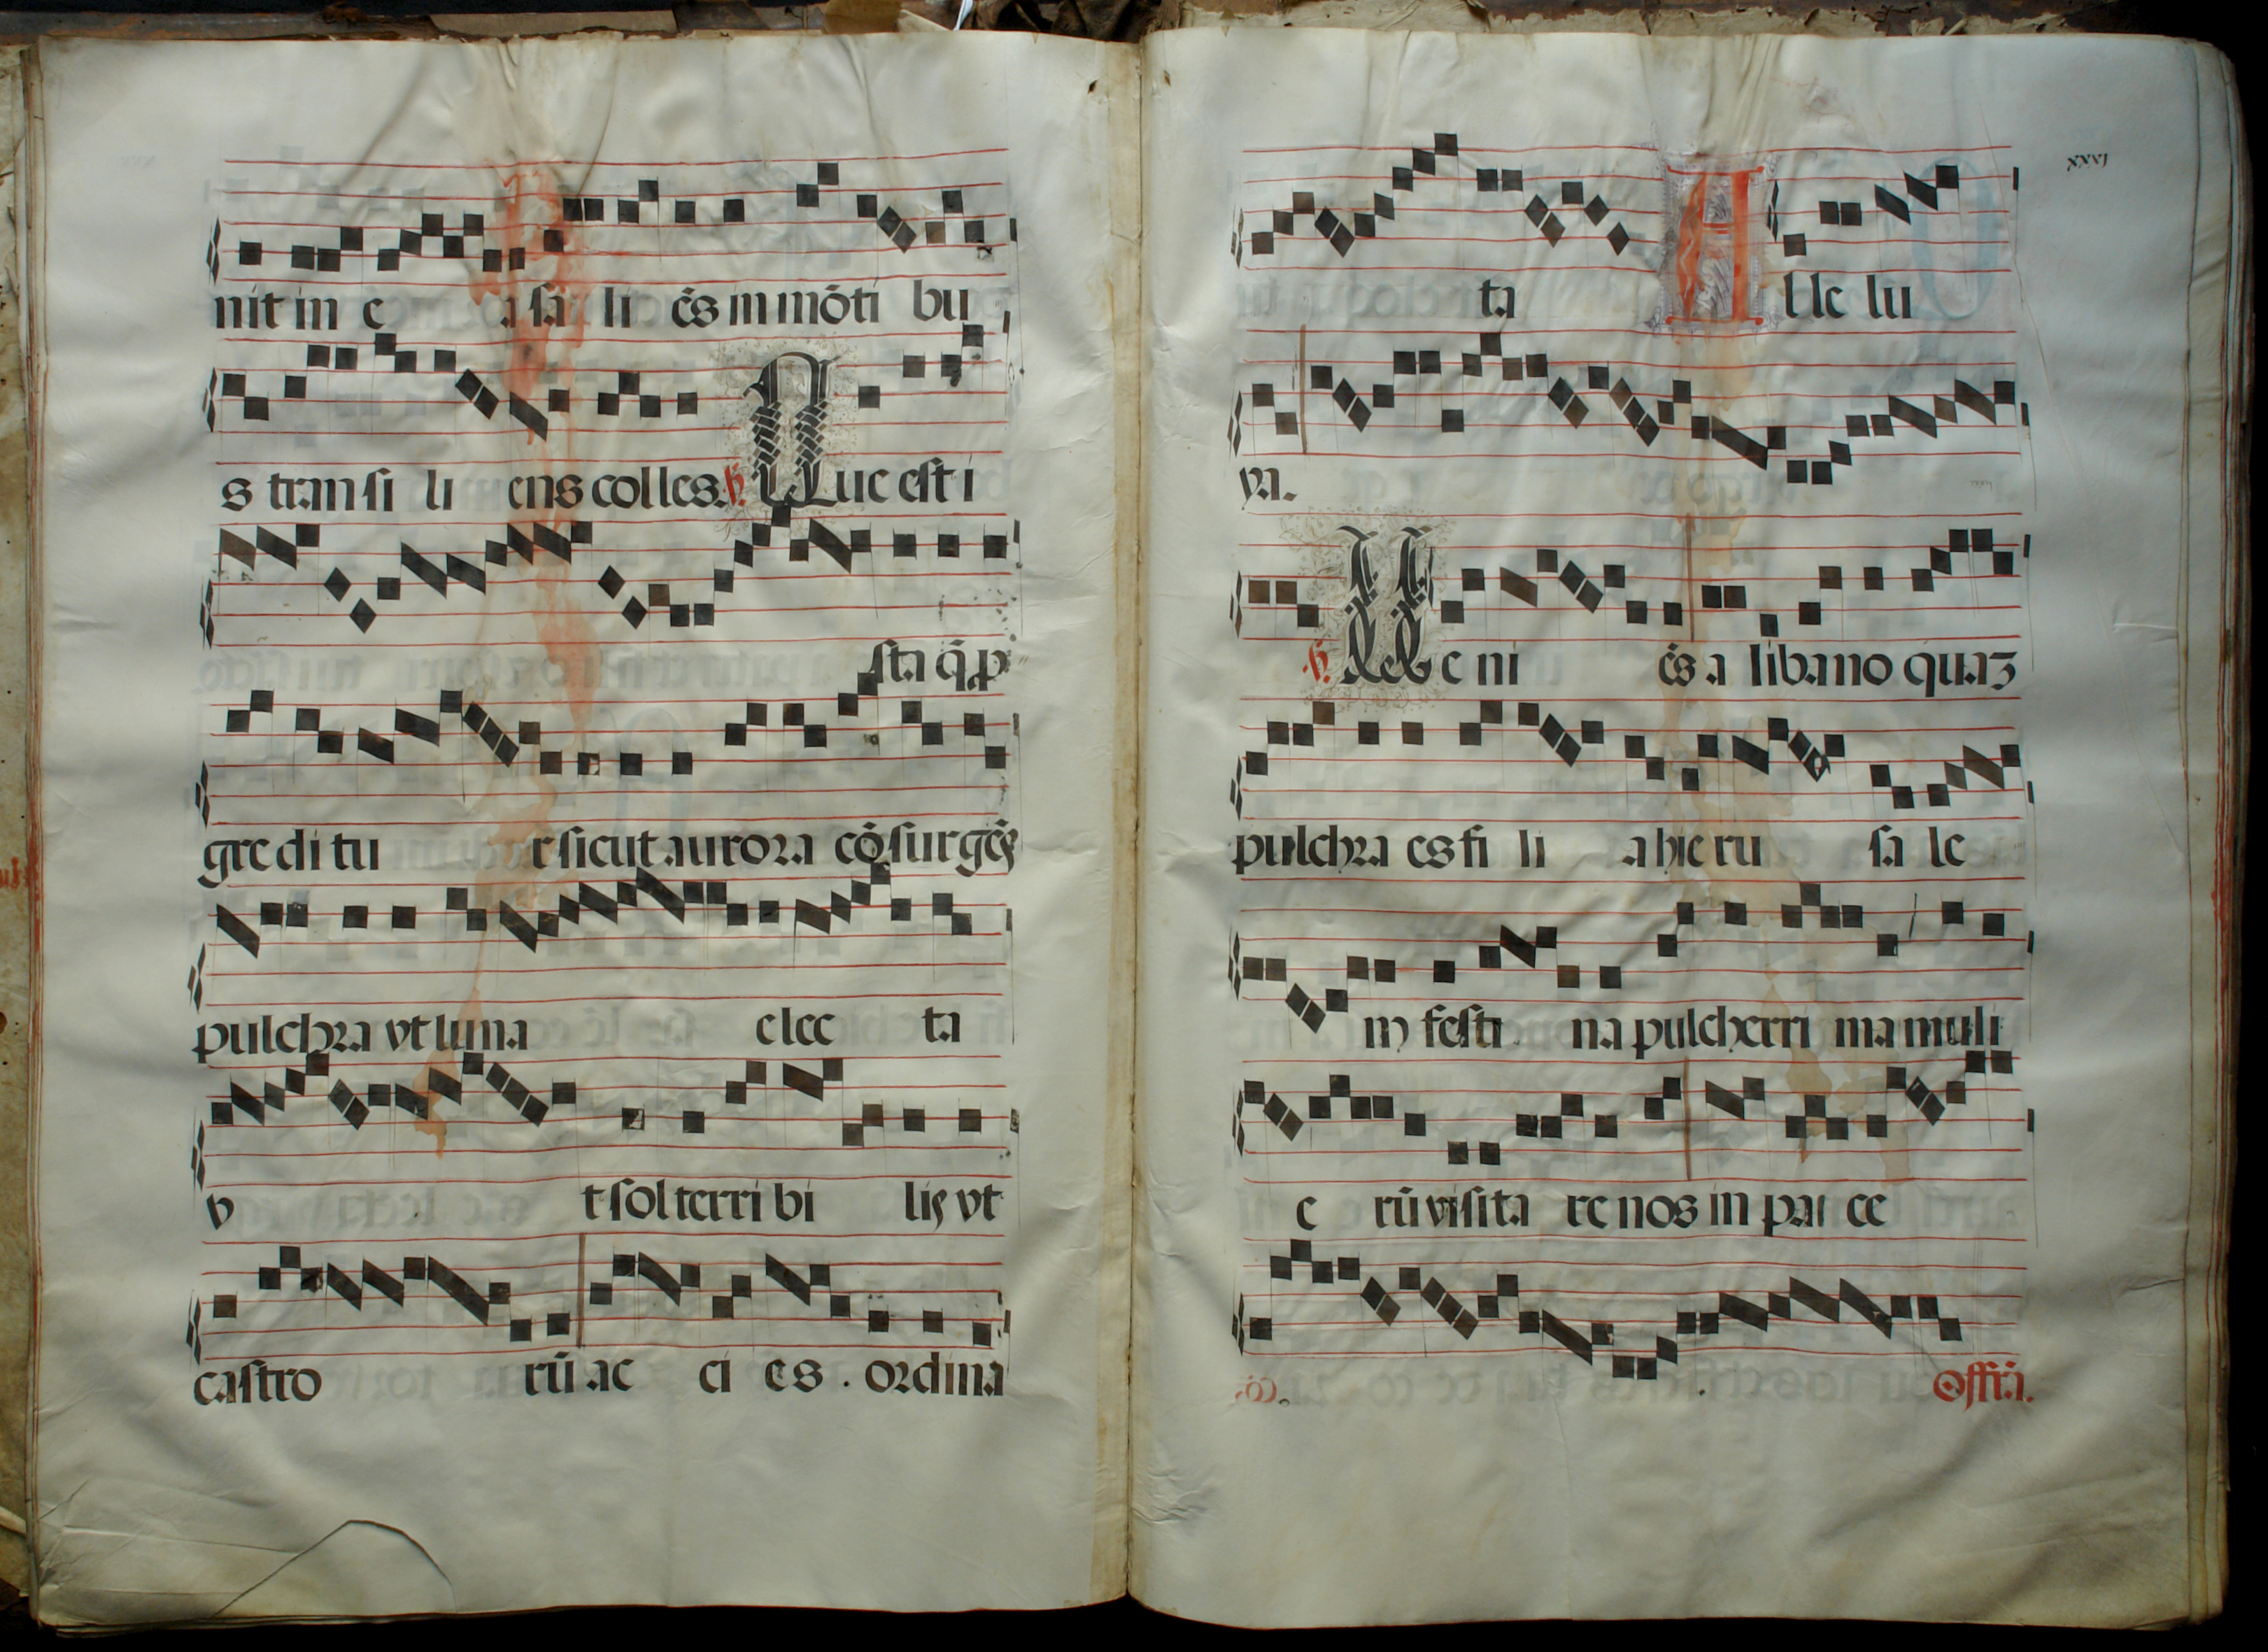 nit in e a sa li ēs in mōti bu
s tran si li ens colles. ℣. Que est i
sta q̄ p
gre di tu r sicut aurora cōsurgēs
pulchra vt luna elec ta
v t sol terri bi lis vt
castro rū ac ci es . ordina
xxvj
ta Alle lu
ya.
℣. Ve ni ēs a libano quaʒ
pulchra es fi li a hieru sa le
m festi na pulcherri ma muli
e rū visita re nos in pa ce
Offiā.